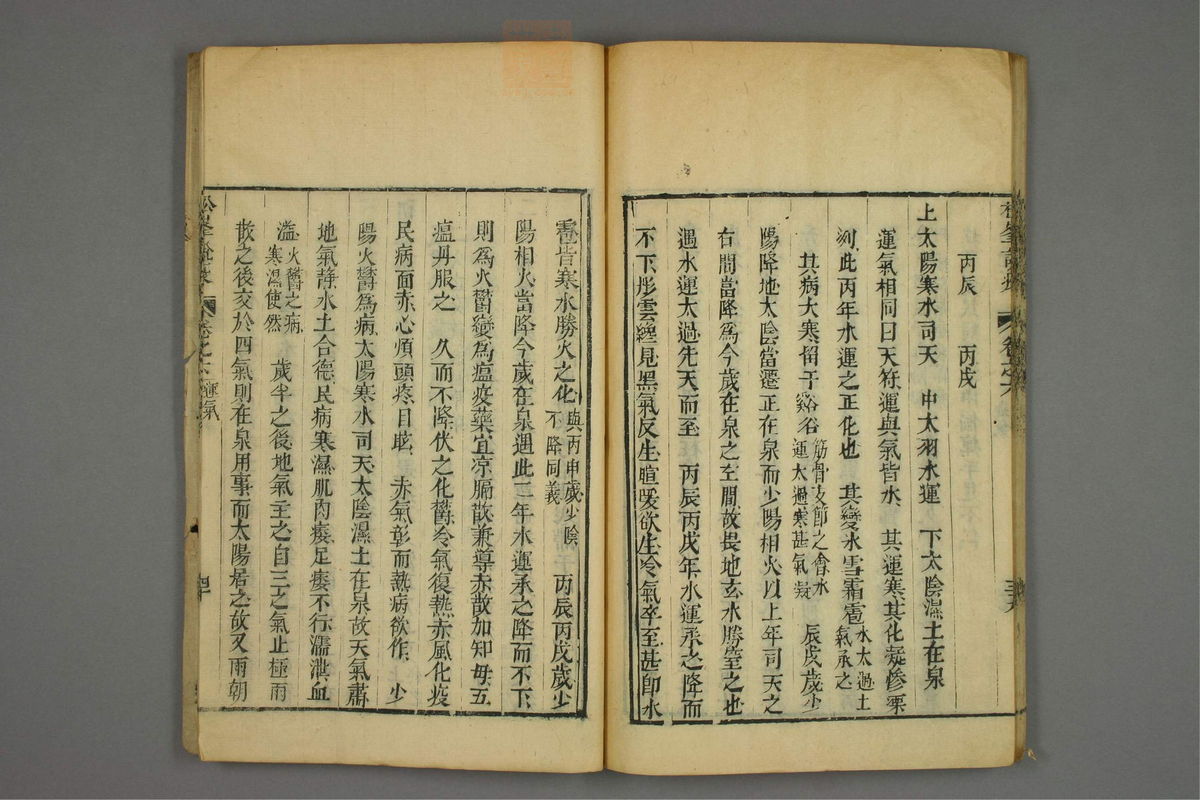 丙辰　丙戌
上太陽寒水司天　中太羽水運　下太陰濕土在泉
運氣相同曰天符運與氣皆水　其運寒其化凝慘凓
冽此丙年水運之正化也　其變氷雪霜雹水太過土氣承之
其病大寒留于谿谷筋骨支節之會水運太過寒甚氣凝　辰戌歲少
陽降地太陰當遷正在泉而少陽相火以上年司天之
右間當降爲今歲在泉之左間故畏地玄水勝窒之也
遇水運太過先天而至　丙辰丙戌年水運承之降而
不下彤雲纔見黑氣反生暄暖欲生冷氣卒至甚即氷
雹皆寒水勝火之化與丙申歲少陰不降同義　丙辰丙戌歲少
陽相火當降今歲在泉遇此二年水運承之降而不下
則爲火鬱變爲瘟疫藥宜凉膈散兼導赤散加知母五
瘟丹服之　久而不降伏之化鬱冷氣復熱赤風化疫
民病面赤心煩頭疼目眩　赤氣彰而熱病欲作　少
陽火鬱爲病太陽寒水司天太陰濕土在泉故天氣肅
地氣静水土合德民病寒濕肌肉痿足痿不行濡泄血
溢火鬱之病寒濕使然　歲半之後地氣主之自三之氣止極雨
散之後交於四氣則在泉用事而太陽居之故又雨朝
松峯說疫
卷之六運氣
四十